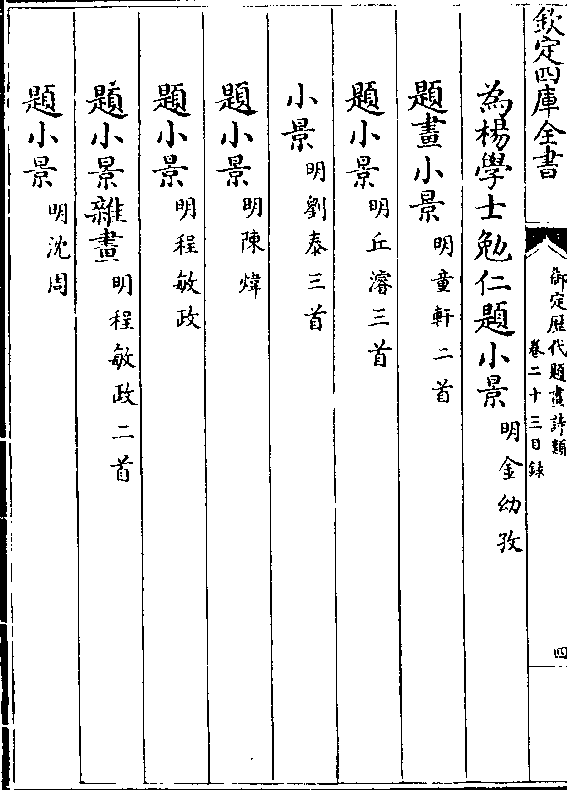 欽定四庫全書
御定歷代題畫詩類
卷二十三目録
四
為楊學士勉仁題小景明金幼孜
題畫小景明童軒二首
題小景明丘濬三首
小景明劉泰三首
題小景明陳煒
題小景明程敏政
題小景雜畫明程敏政二首
題小景明沈周